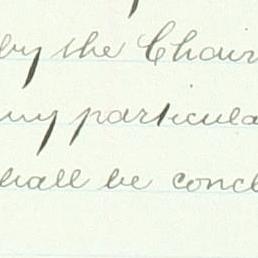 by the Chair
ny particula
hall be concl